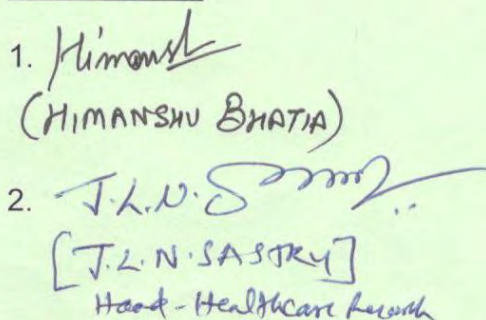 1. Himansh
(HIMANSHU BHATIA)
2. J.L.N. Sastry
[J.L.N. SASTRY]
Head - Healthcare Research